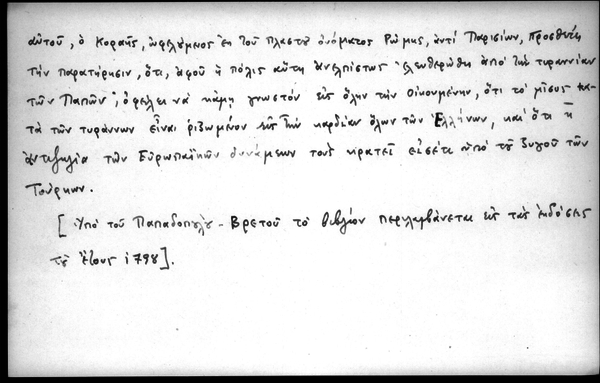 αὐτοῦ, ὁ Κοραῆς, ὠφελούμενος ἐκ τοῦ πλαστοῦ ὀνόματος Ρώμης, ἀντί Παρισίων, προσθέτει
τὴν παρατήρησιν, ὅτι, ἀφοῦ ἡ πόλις αὕτη ἀνελπίστως ἐλευθερώθη ἀπό τὴν τυραννίαν
τῶν Παπῶν, ὀφείλει νά κάμῃ γνωστόν εἰς ὅλην τὴν Οἰκουμένην, ὅτι τό μῖσος κα-
τά τῶν τυράννων εἶναι ριζωμένον εἰς τὴν καρδίαν ὅλων τῶν Ἑλλήνων, καί ὅτι ἡ
ἀντιζηλία τῶν Εὐρωπαϊκῶν δυνάμεων τούς κρατεῖ εἰσέτι ὑπό τοῦ ζυγοῦ τῶν
Τούρκων.
[Ὑπό τοῦ Παπαδοπούλου-Βρετοῦ τό βιβλίον περιλαμβάνεται εἰς τάς ἐκδόσεις
τοῦ ἔτους 1798].